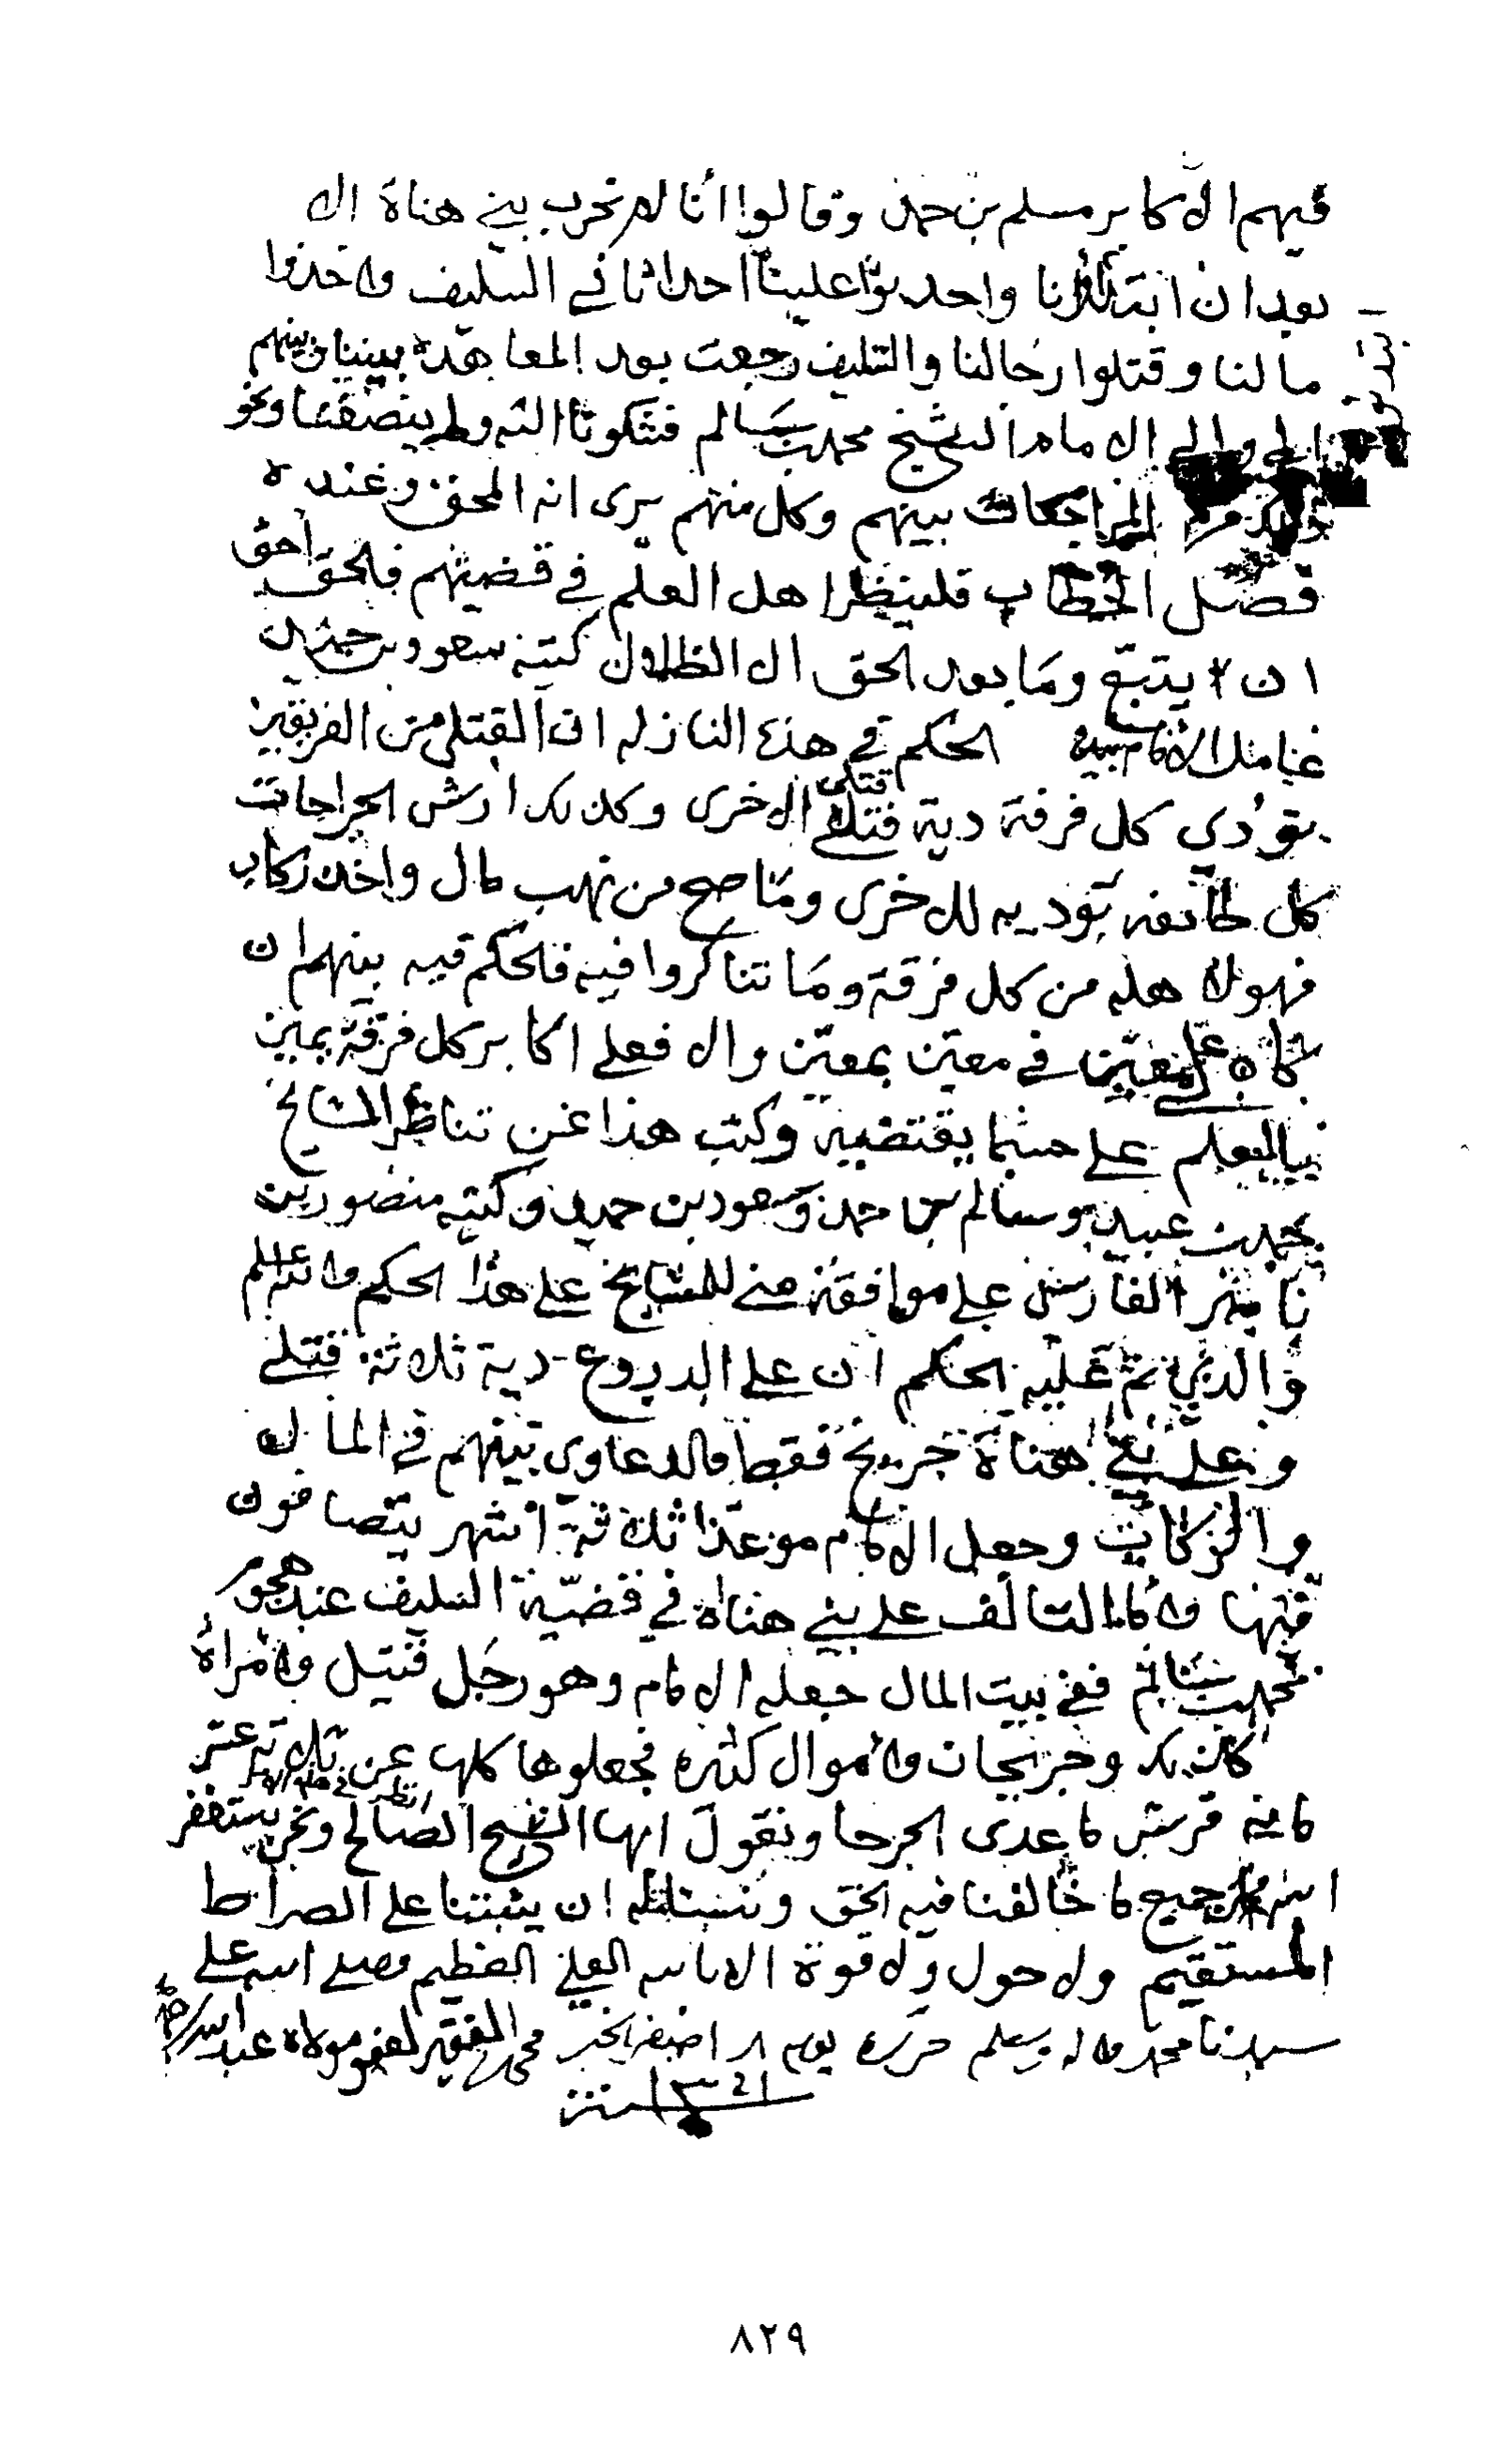 فيهم الاكابر مسلم بن حمد وقالوا انا لم نحرب بني هناة الا
بعد ان ابتدأونا واحدثوا علينا احداثا في السليف واخذوا
مالنا وقتلوا رجالنا والسليف رجعت بعد المعاهدة بيننا وبينهم
الى والي الامام الشيخ محمد بن سالم فشكونا اليه ولم ينصفنا ونحو
المراجعات بينهم وكل منهم يرى انه المحق وعنده
فصل الخطاب فلينظر اهل العلم في قضيتهم فالحق احق
ان يتبع وما بعد الحق الا الظلال كتبه سعود بن حميد
عامل الامام بيده الحكم في هذه النازله ان القتلى من الفريقين
تؤدي كل فرقة دية قتلى الاخرى وكذلك ارش الجراحات
كل طائفه تؤديه للاخرى وما صح من نهب مال واخذ ركاب
فهو لاهله من كل فرقة وما تناكروا فيه فالحكم فيه بينهم ان
كان على معين في معين بمعين والا فعلى اكابر كل فرقة يمين
بالعلم على حسبما يقتضيه وكتب هذا عن تناظر المشايخ
محمد بن عبيد وسالم بن حمد وسعود بن حميد وكتبه منصور بن
ناصر الفارسي على موافقة مني للمشايخ على هذا الحكم والله اعلم
والذي تم عليه الحكم ان على الدروع دية ثلاثة قتلى
وعلى بني هناة جريح فقط والدعاوي بينهم في المال
والركاب وجعل الامام موعدا ثلاثة اشهر يتصافون
فيها واما التالف على بني هناه في قضية السليف عند هجوم
محمد بن سالم ففي بيت المال جعله الامام وهو رجل قتيل وامراة
كذلك وجريحان واموال كثيره فجعلوها كلها عن ثلاثة عشر
مايه قرش ما عدى الجرحا ونقول ايها الشيخ الصالح ونحن نستغفر
الله من جميع ما خالفنا فيه الحق ونسئله ان يثبتنا على الصراط
المستقيم ولا حول ولا قوة الا بالله العلي العظيم وصلى الله على
سيدنا محمد واله وسلم حرره يوم الفقير لعفو مولاه عبدالله
٨٢٩